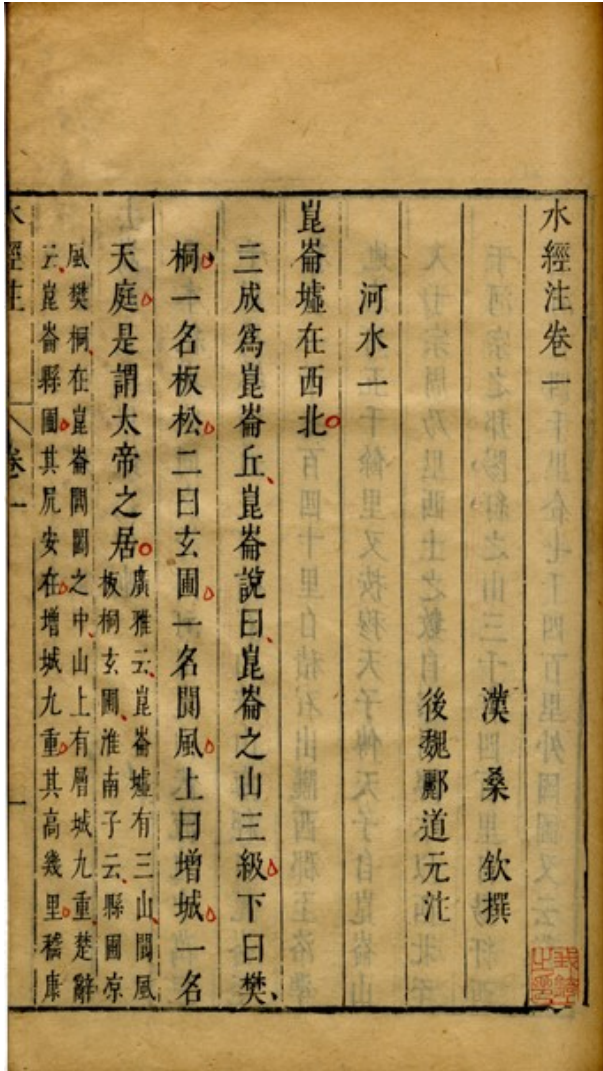 水經注卷一
漢 桑 欽撰
後魏酈道元注
河水一
崑崙墟在西北
三成爲崑崙丘崑崙說曰崑崙之山三級下曰樊
桐一名板松二曰玄圃一名閬風上曰增城一名
天庭是謂太帝之居
廣雅云崑崙墟有三山閬風
板桐玄圃淮南子云縣圃凉
風樊桐在崑崙閶闔之中山上有層城九重楚辭
云崑崙縣圃其尻安在增城九重其高幾里嵇康
水經注 卷一 一